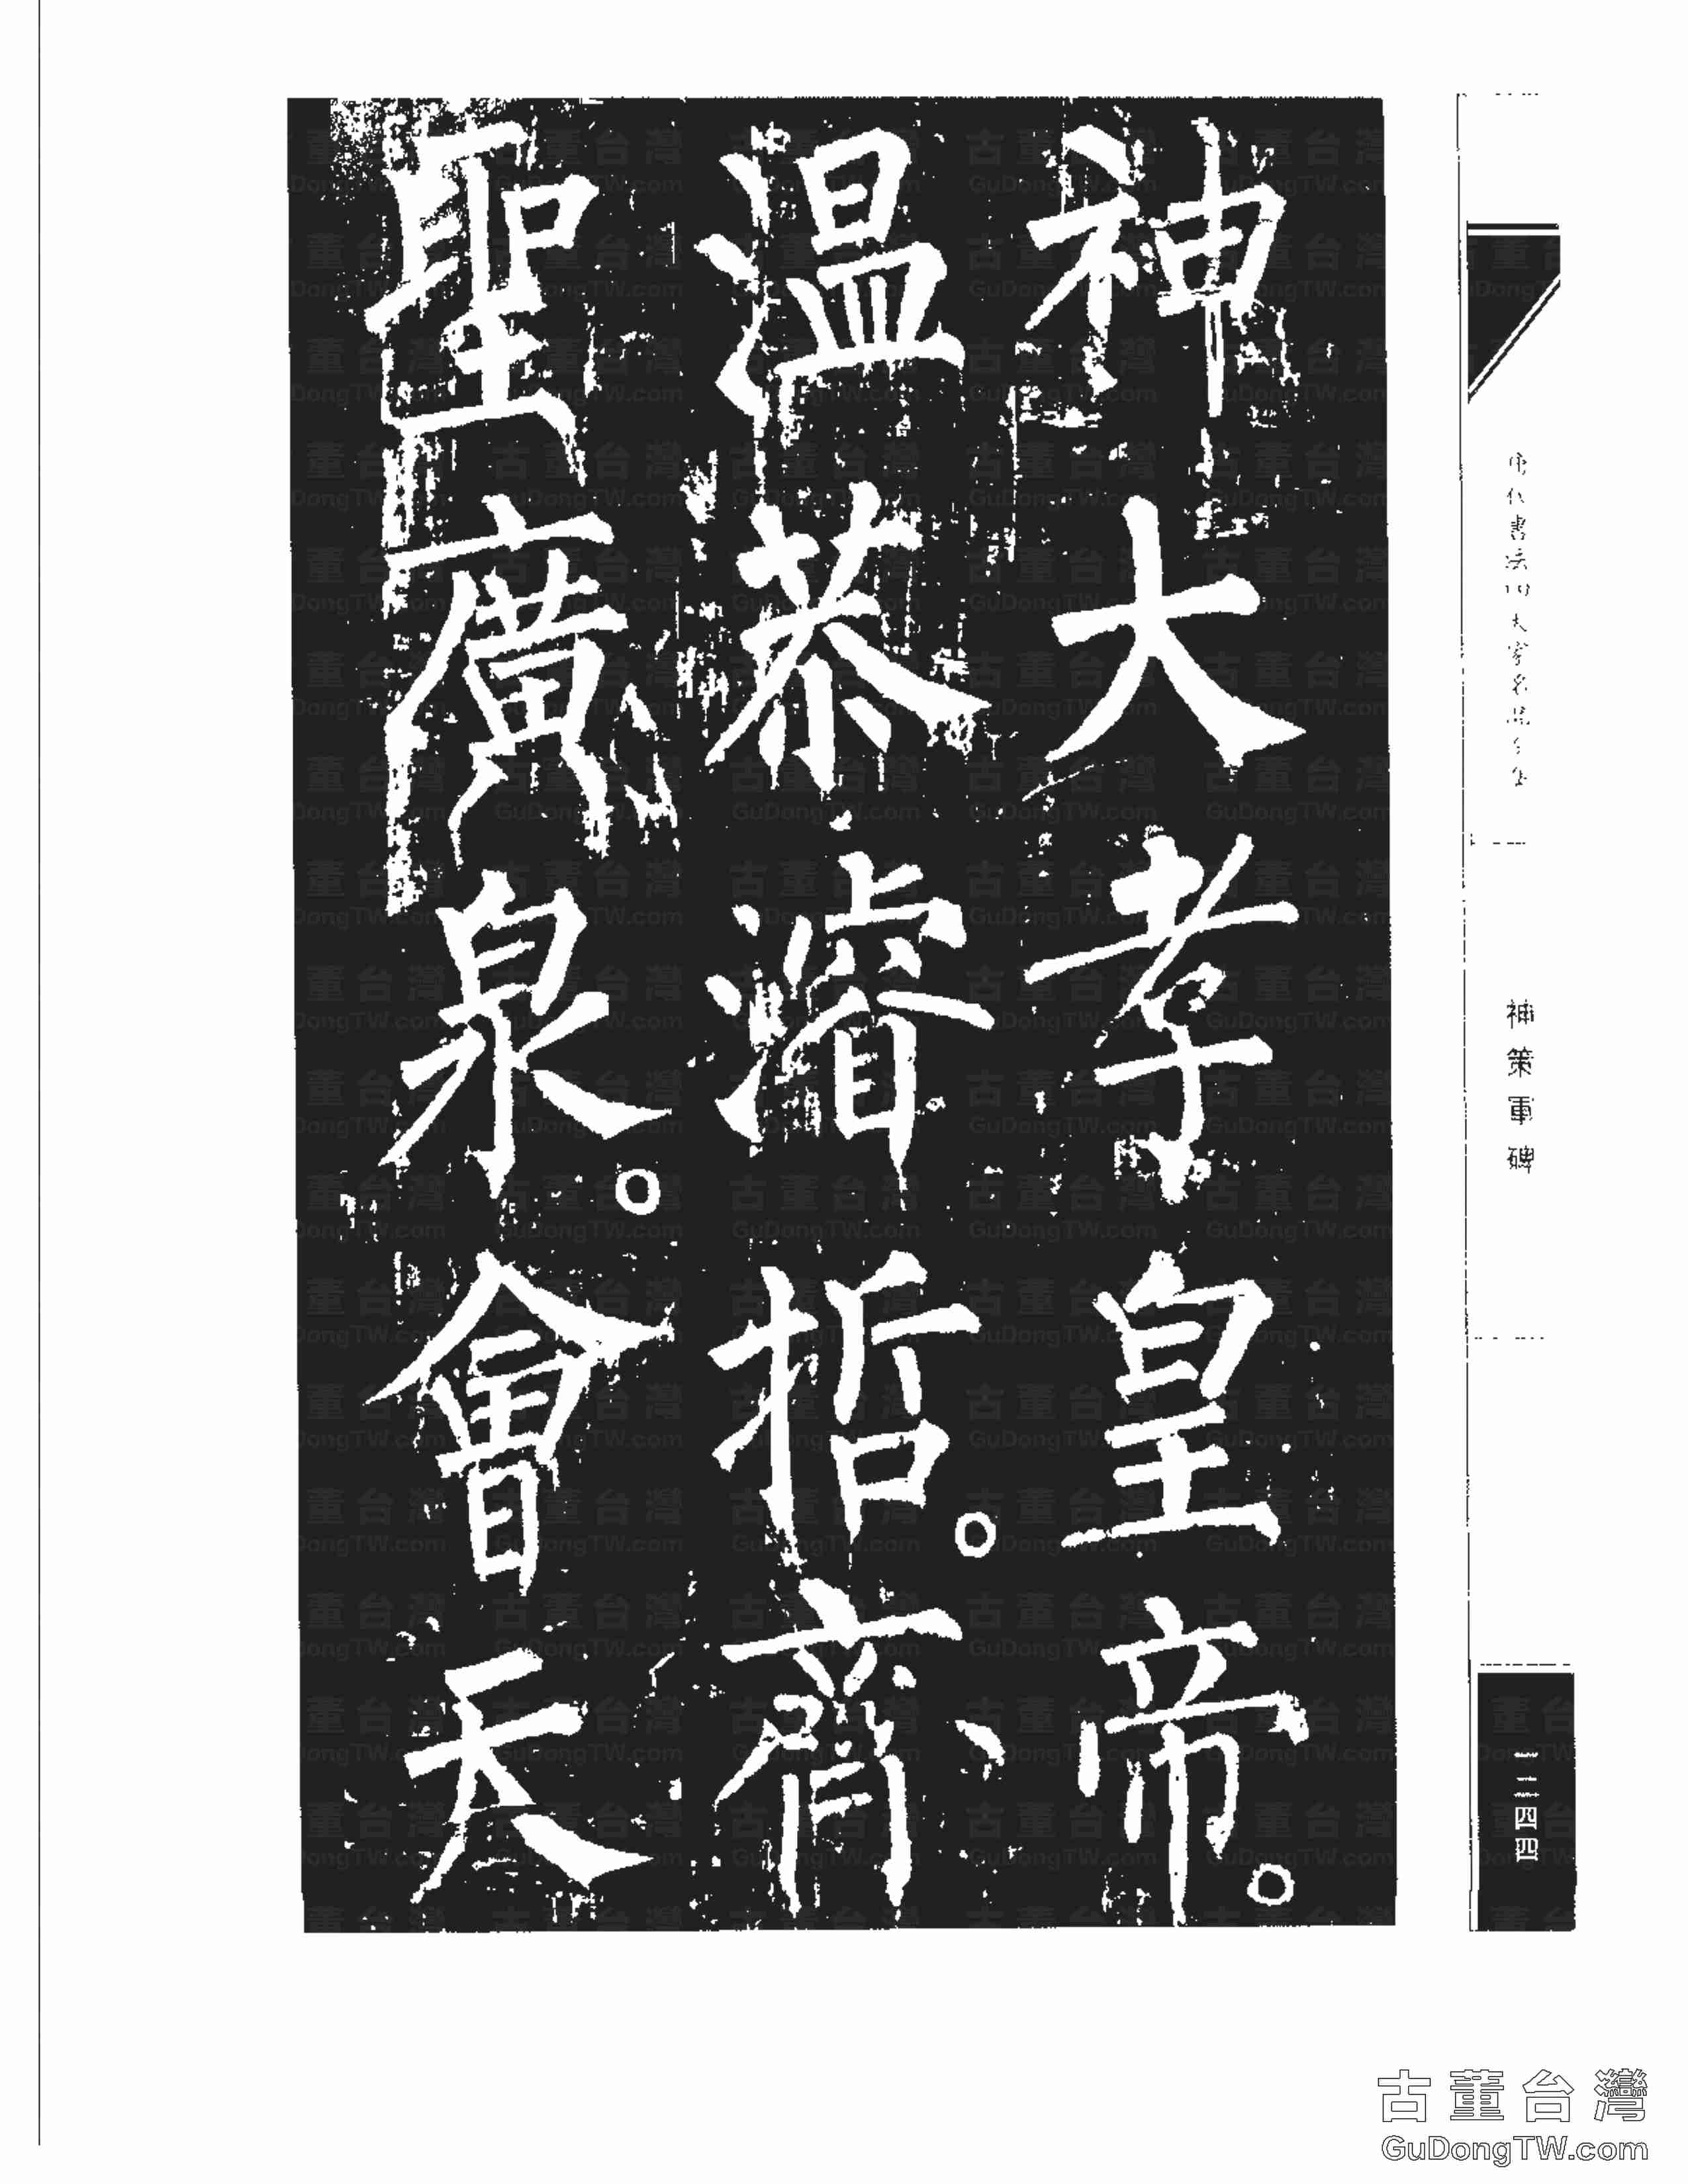 神大孝皇帝。
溫恭濬哲。齊
聖廣泉。會天
唐代書法四大家名品全集
神策軍碑
一二四四
古董台灣
GuDongTW.com